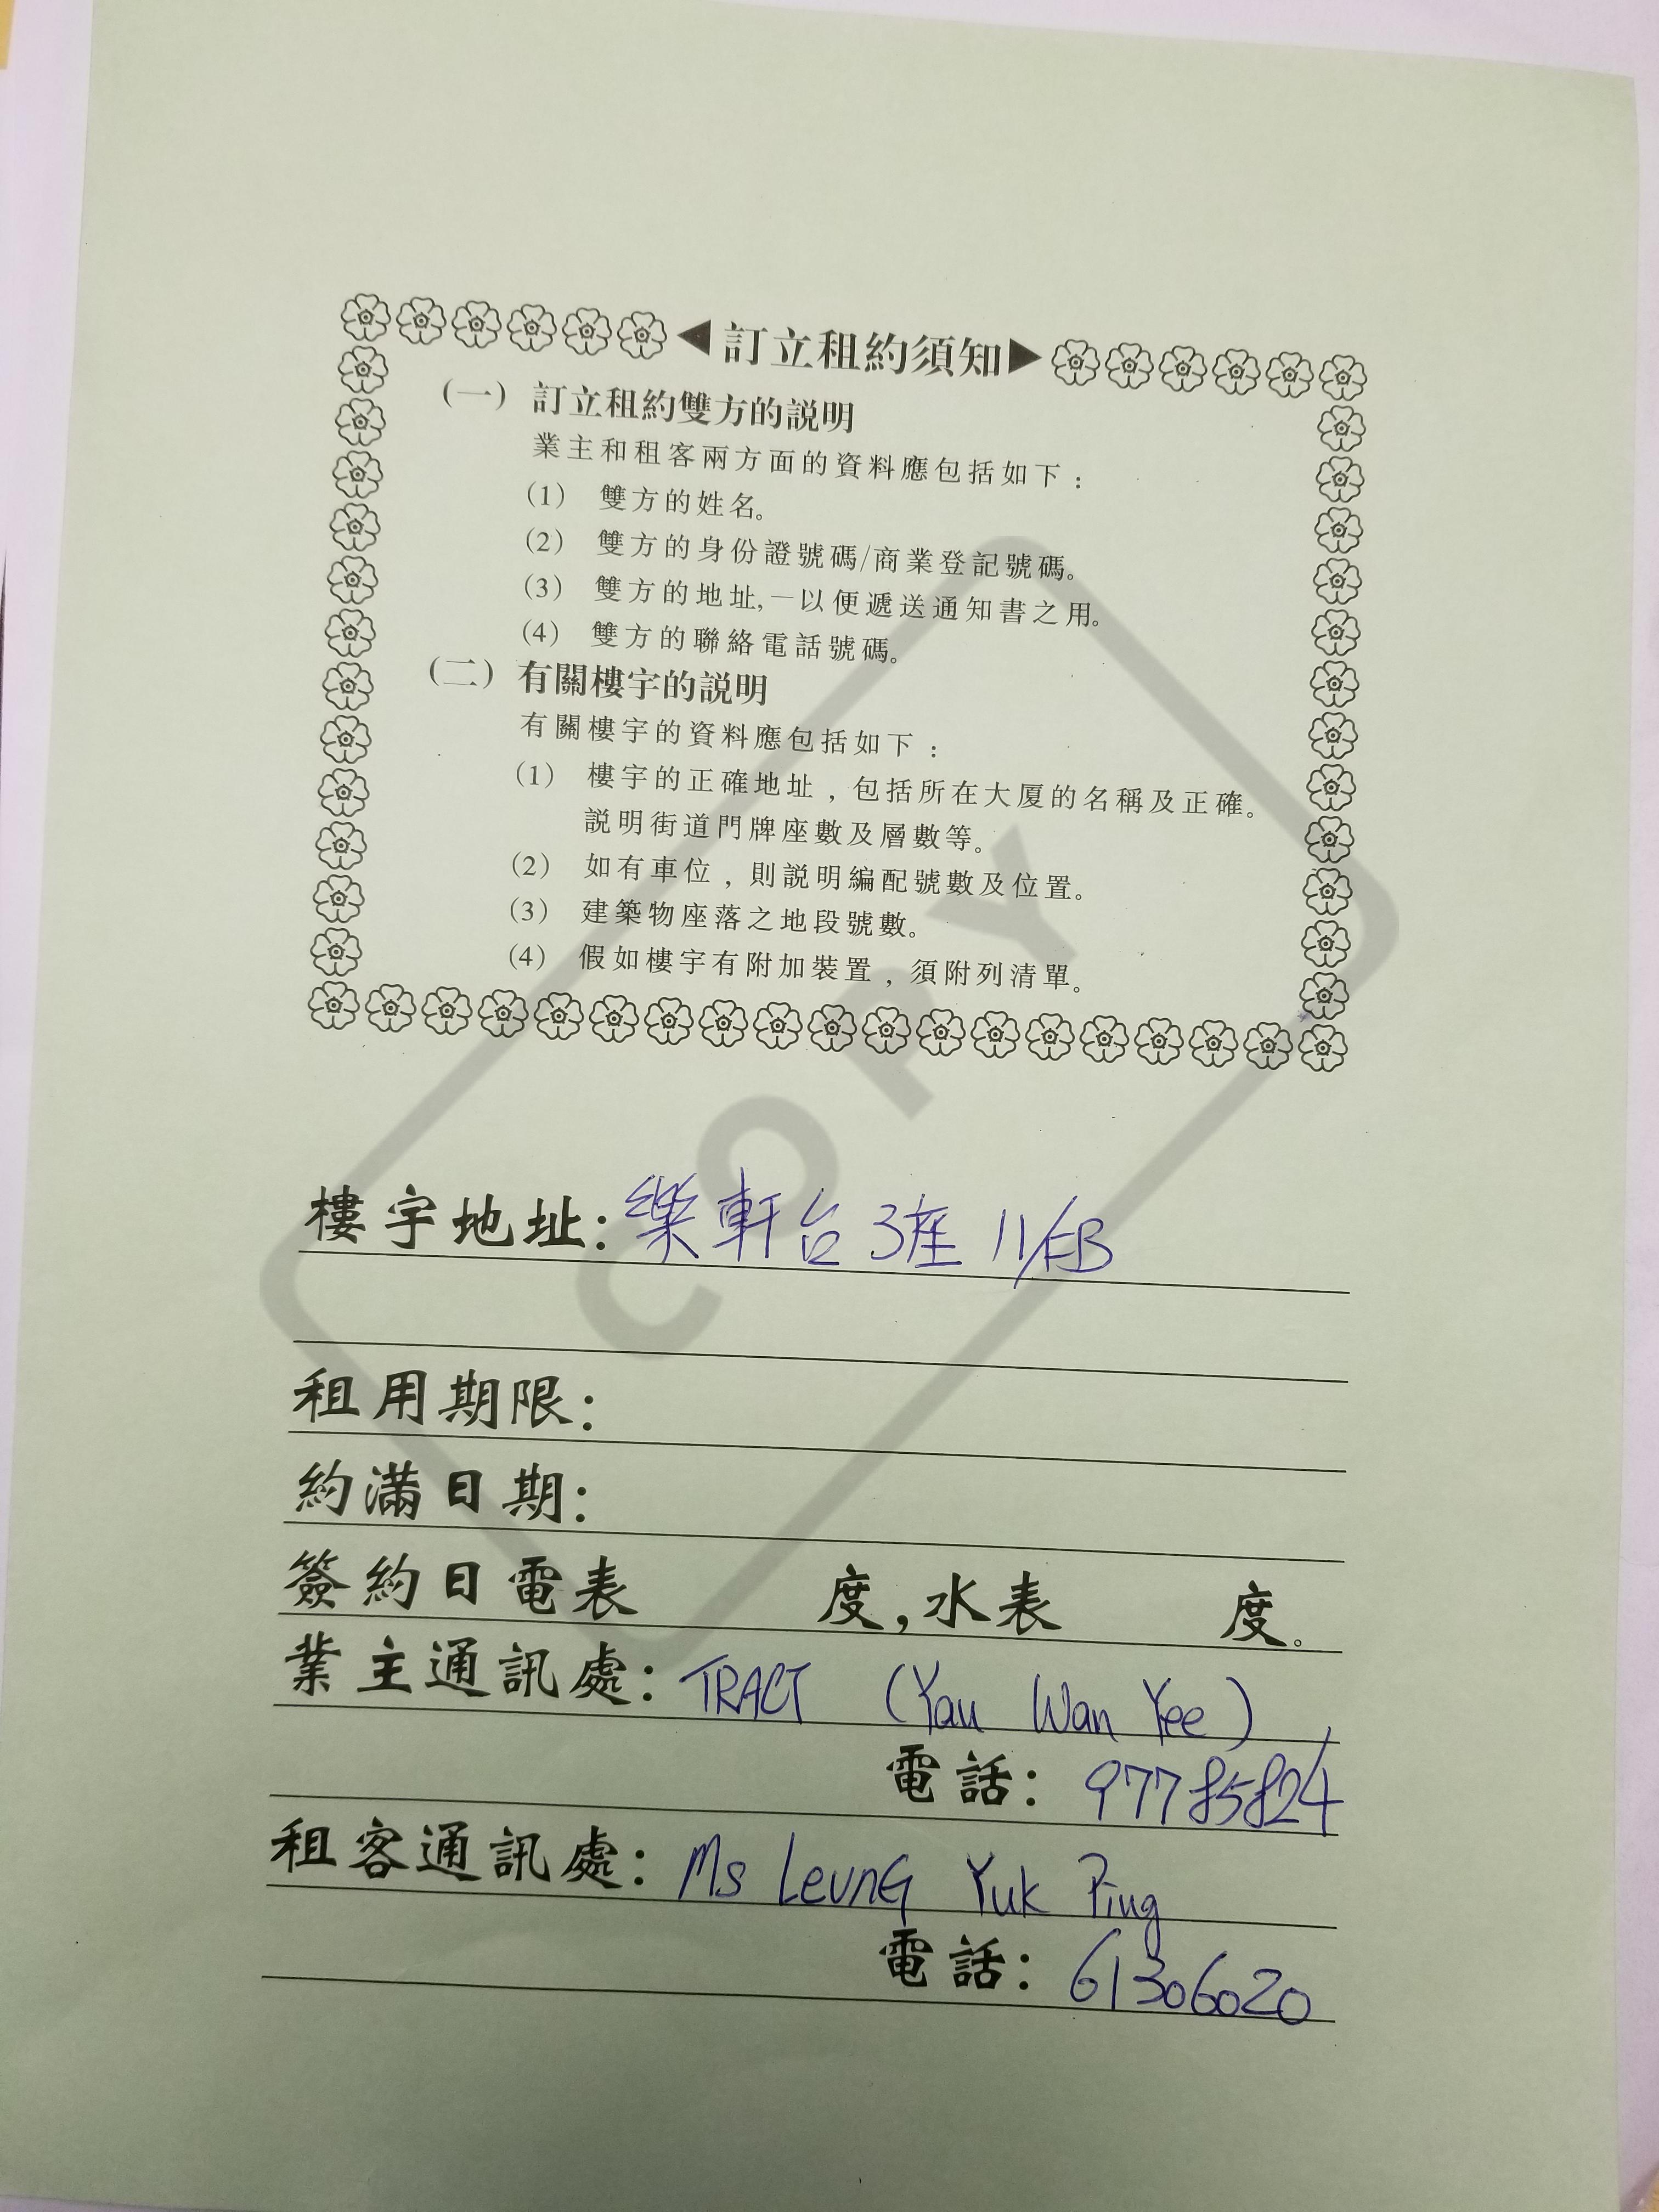 ◀訂立租約須知▶
(一) 訂立租約雙方的説明
業主和租客兩方面的資料應包括如下：
(1) 雙方的姓名。
(2) 雙方的身份證號碼/商業登記號碼。
(3) 雙方的地址,一以便遞送通知書之用。
(4) 雙方的聯絡電話號碼。
(二) 有關樓宇的説明
有關樓宇的資料應包括如下：
(1) 樓宇的正確地址，包括所在大厦的名稱及正確。
説明街道門牌座數及層數等。
(2) 如有車位，則説明編配號數及位置。
(3) 建築物座落之地段號數。
(4) 假如樓宇有附加裝置，須附列清單。
COPY
樓宇地址：樂軒台3座 11/FB
租用期限：
約滿日期：
簽約日電表 度,水表 度。
業主通訊處：TRACT (Yau Wan Yee)
電話：97785824
租客通訊處：Ms Leung Yuk Ping
電話：61306020